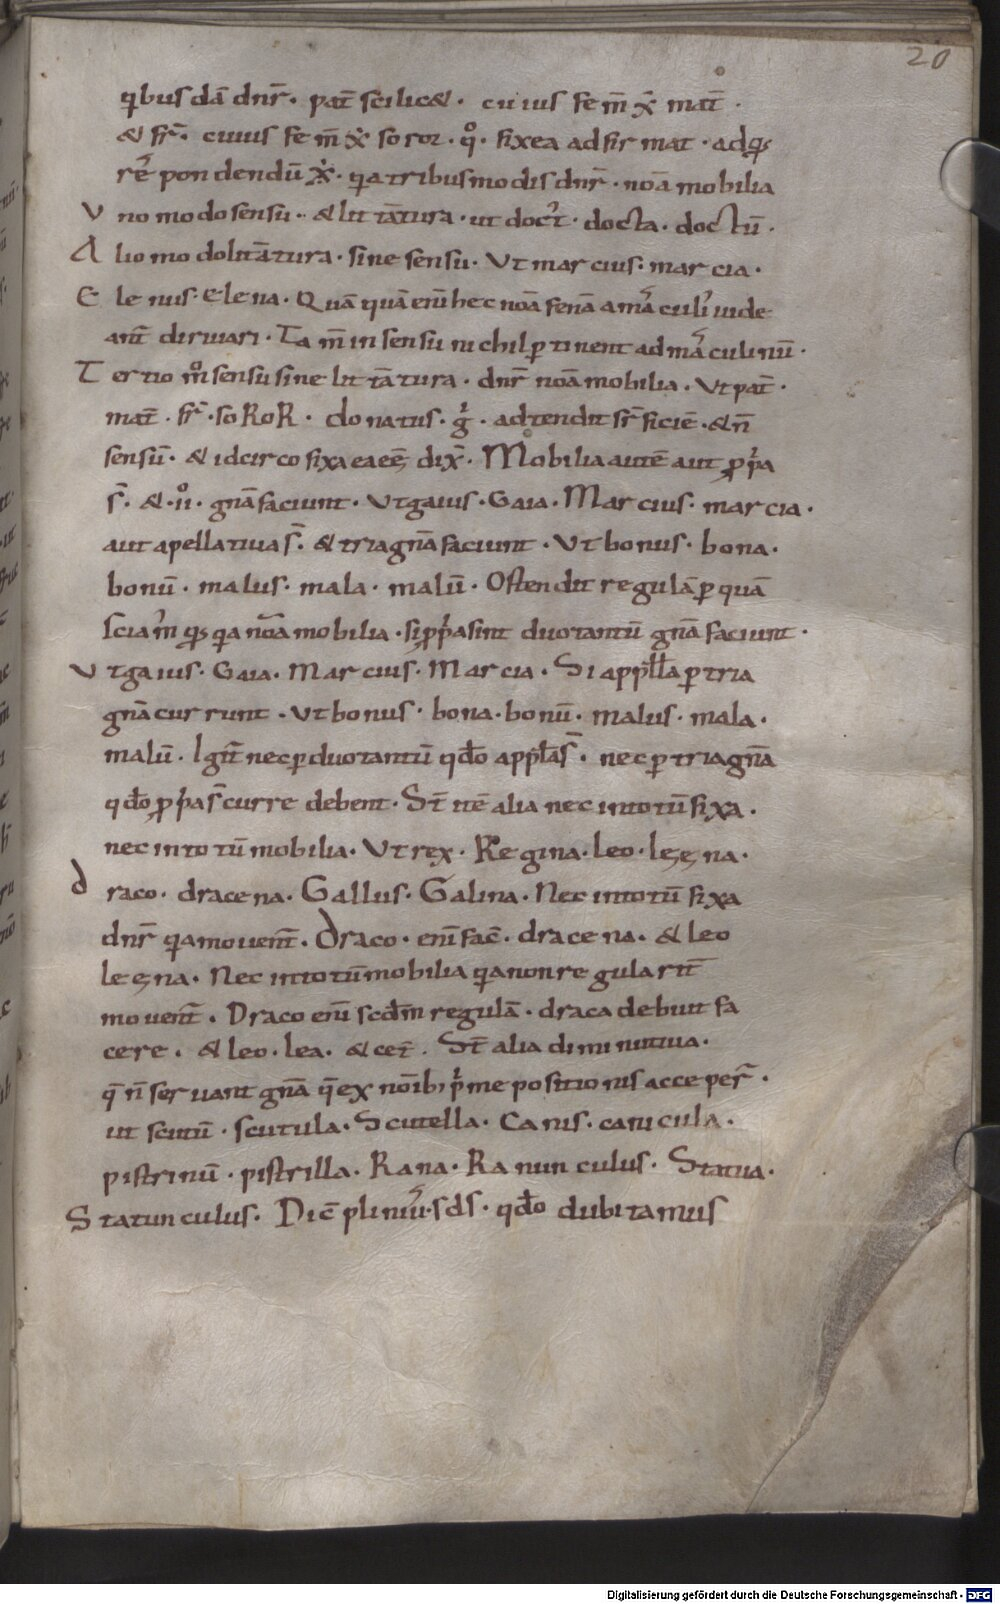 20
qibus dā dnr̄. pat̄ scilic&. cuius fem̄ x̄ mat̄.
& fr̄. cuius fem̄ x̄ soror. qͦ. fixea adfirmat. ad qs
re pondendū x̄. qia tribus modis dnr̄. noā mobilia
Vno modo sensu. & litt̄atura. ut doct̄. docta. doctū.
Alio modo litt̄atura. sine sensu. Ut marcius. marcia.
Elenus. Elena. Quā quā enī hec noā fenā a mā culi uide
ant̄ diriuari. Tam̄ in sensu nichil ptinent ad mā culinū.
Tertio mͦ sensu sine litt̄atura. dnr̄ noā mobilia. Ut pat̄.
mat̄. fr̄. soRoR. donatus. g̊. adtendit sr̄ficiē. & n̄
sensū. & idcirco fixa ea eē dix̄. Mobilia autē aut ppa
s̄. & .ii. gnā faciunt. Ut gaius. Gaia. Marcius. marcia.
aut apellatiua s̄. & tria gnā faciunt. Ut bonus. bona.
bonū. malus. mala. malū. Ostendit regulā p quā
sciam̄ qs qia noā mobilia. si ppa sint duo tantū gnā faciunt.
Ut gaius. Gaia. Marcius. Marcia. Si appll̄a p tria
gnā currunt. Ut bonus. bona. bonū. malus. mala.
malū. Igit̄ nec p duo tantū qdo appll̄a s̄. nec p tria gnā
qdo ppa s̄ curre debent. St̄ itē alia nec in totū fixa.
nec in totū mobilia. Ut rex. Regina. leo. leęna.
draco. dracena. Gallus. Galina. Nec in totū fixa
dnr̄ qia mouent̄. Draco. enī fac̄. dracena. & leo
leęna. Nec in totū mobilia qia non regularit̄
mouent̄. Draco enī scdm̄ regulā. draca debuit fa
cere. & leo. lea. & cet̄. St̄ alia diminutiua.
q̄ n̄ seruant gnā q̄ ex noīb; p̄me positionis acceper̄.
ut scutū. scutula. Scutella. Canis. canicula.
pistrinū. pistrilla. Rana. Ranunculus. Statua.
Statunculus. Dic̄ pliniu sds. qdo dubitamus
Digitalisierung gefördert durch die Deutsche Forschungsgemeinschaft - DFG